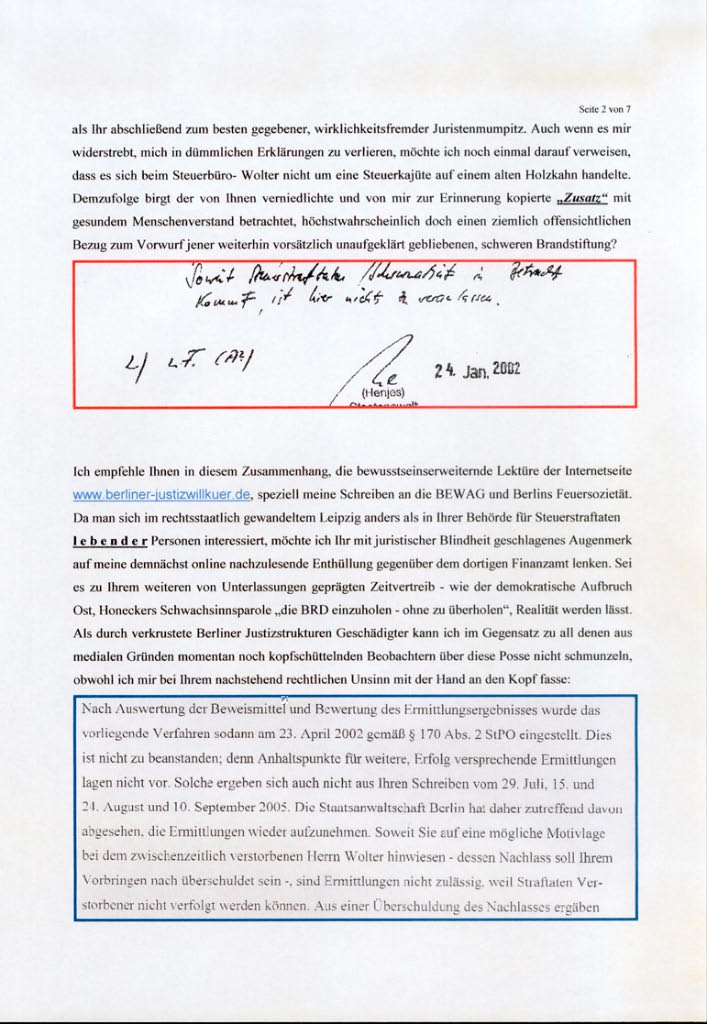 Seite 2 von 7
als Ihr abschließend zum besten gegebener, wirklichkeitsfremder Juristenmumpitz. Auch wenn es mir
widerstrebt, mich in dümmlichen Erklärungen zu verlieren, möchte ich noch einmal darauf verweisen,
dass es sich beim Steuerbüro- Wolter nicht um eine Steuerkajüte auf einem alten Holzkahn handelte.
Demzufolge birgt der von Ihnen verniedlichte und von mir zur Erinnerung kopierte „Zusatz“ mit
gesundem Menschenverstand betrachtet, höchstwahrscheinlich doch einen ziemlich offensichtlichen
Bezug zum Vorwurf jener weiterhin vorsätzlich unaufgeklärt gebliebenen, schweren Brandstiftung?
Soweit in Betracht
kommt, ist hier nichts zu veranlassen.
24. Jan. 2002
(Henjes)
Staatsanwalt
Ich empfehle Ihnen in diesem Zusammenhang, die bewusstseinserweiternde Lektüre der Internetseite
www.berliner-justizwillkuer.de, speziell meine Schreiben an die BEWAG und Berlins Feuersozietät.
Da man sich im rechtsstaatlich gewandeltem Leipzig anders als in Ihrer Behörde für Steuerstraftaten
l e b e n d e r Personen interessiert, möchte ich Ihr mit juristischer Blindheit geschlagenes Augenmerk
auf meine demnächst online nachzulesende Enthüllung gegenüber dem dortigen Finanzamt lenken. Sei
es zu Ihrem weiteren von Unterlassungen geprägten Zeitvertreib - wie der demokratische Aufbruch
Ost, Honeckers Schwachsinnsparole „die BRD einzuholen - ohne zu überholen“, Realität werden lässt.
Als durch verkrustete Berliner Justizstrukturen Geschädigter kann ich im Gegensatz zu all denen aus
medialen Gründen momentan noch kopfschüttelnden Beobachtern über diese Posse nicht schmunzeln,
obwohl ich mir bei Ihrem nachstehend rechtlichen Unsinn mit der Hand an den Kopf fasse:
Nach Auswertung der Beweismittel und Bewertung des Ermittlungsergebnisses wurde das
vorliegende Verfahren sodann am 23. April 2002 gemäß § 170 Abs. 2 StPO eingestellt. Dies
ist nicht zu beanstanden; denn Anhaltspunkte für weitere, Erfolg versprechende Ermittlungen
lagen nicht vor. Solche ergeben sich auch nicht aus Ihren Schreiben vom 29. Juli, 15. und
24. August und 10. September 2005. Die Staatsanwaltschaft Berlin hat daher zutreffend davon
abgesehen, die Ermittlungen wieder aufzunehmen. Soweit Sie auf eine mögliche Motivlage
bei dem zwischenzeitlich verstorbenen Herrn Wolter hinwiesen - dessen Nachlass soll Ihrem
Vorbringen nach überschuldet sein -, sind Ermittlungen nicht zulässig, weil Straftaten Ver-
storbener nicht verfolgt werden können. Aus einer Überschuldung des Nachlasses ergäben